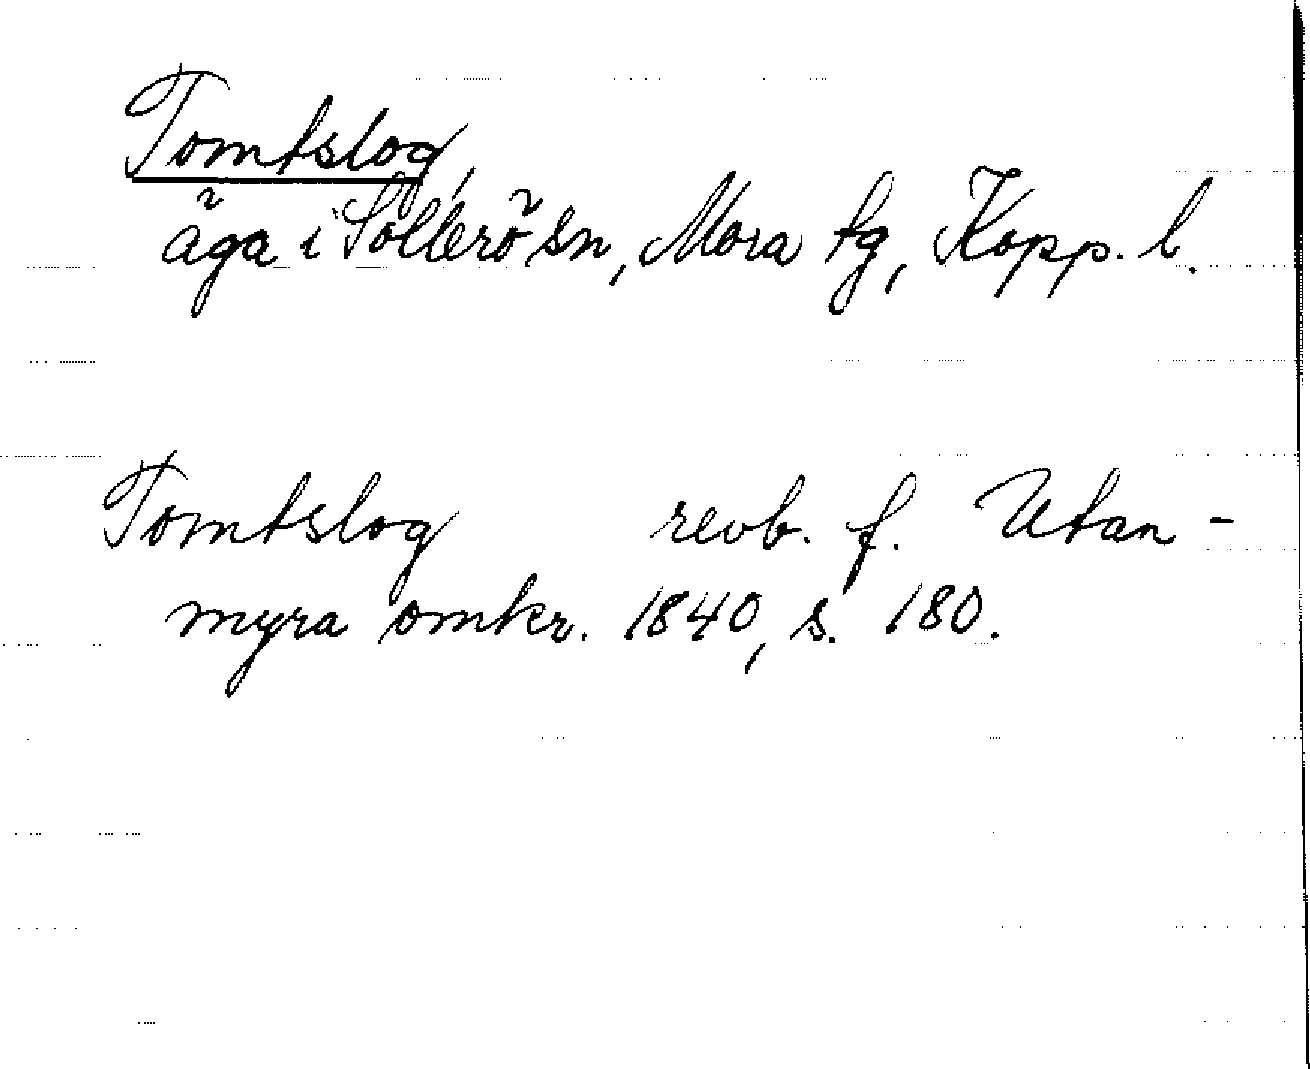 Tomtslog,
äga i Sollerö sn, Mora tg, Kopp. l.
Tomtslog revb. f. Utan-
myra omkr. 1840, s. 180.